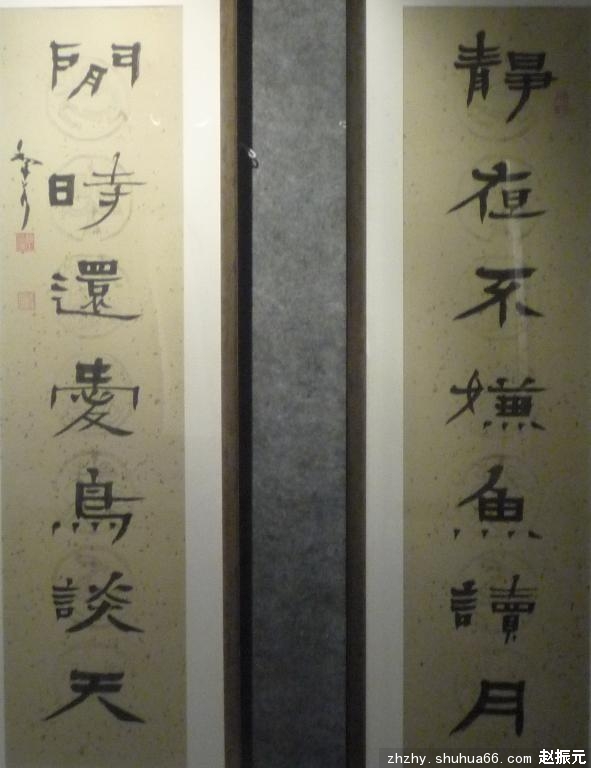 靜夜不嫌魚讀月
閒時還愛鳥談天
zhzhy.shuhua66.com 赵振元